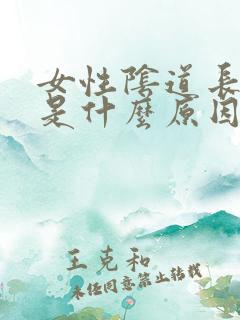 女性陰道長
是什麼原因
王克和
未经同意禁止转载